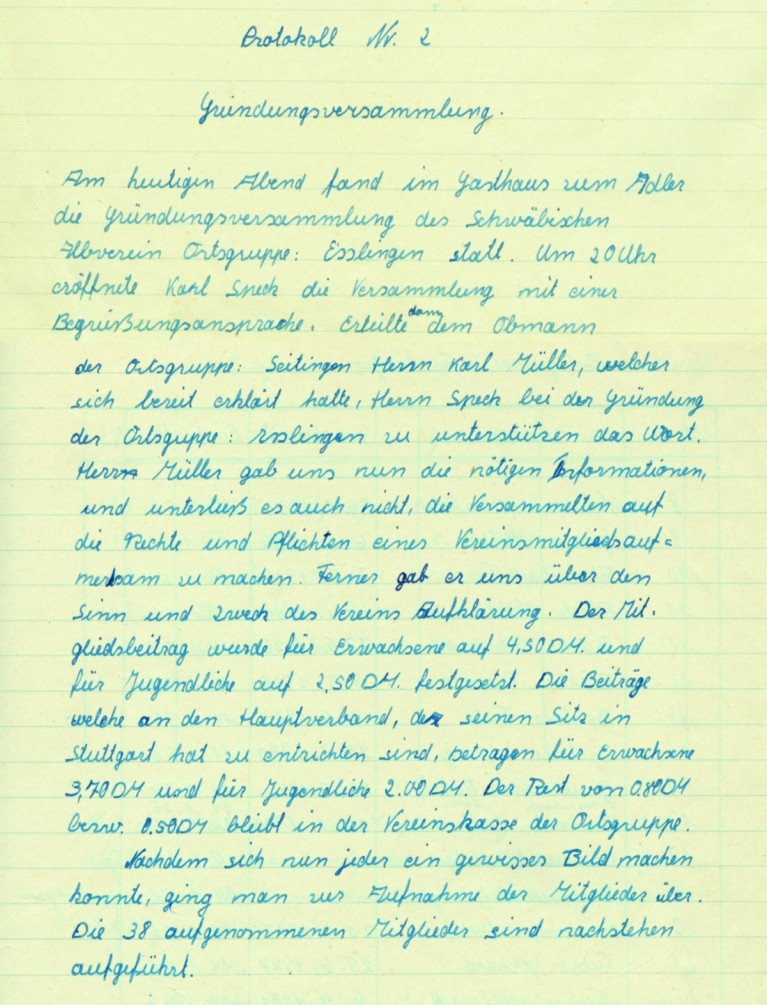 Protokoll Nr. 2
Gründungsversammlung.
Am heutigen Abend fand im Gasthaus zum Adler
die Gründungsversammlung des Schwäbischen
Albverein Ortsgruppe: Esslingen statt. Um 20 Uhr
eröffnete Karl Speck die Versammlung mit einer
Begrüßungsansprache. Erteilte dann dem Obmann
der Ortsgruppe: Seitingen Herrn Karl Müller, welcher
sich bereit erklärt hatte, Herrn Speck bei der Gründung
der Ortsguppe: Esslingen zu unterstützen das Wort.
Herr Müller gab uns nun die nötigen Informationen,
und unterließ es auch nicht, die Versammelten auf
die Rechte und Pflichten eines Vereinsmitglieds auf=
merksam zu machen. Ferner gab er uns über den
Sinn und Zweck des Vereins Aufklärung. Der Mit-
gliedsbeitrag wurde für Erwachsene auf 4,50 DM. und
für Jugendliche auf 2,50 DM. festgesetzt. Die Beiträge
welche an den Hauptverband, der seinen Sitz in
Stuttgart hat zu entrichten sind, betragen für Erwachsene
3,70 DM und für Jugendliche 2.00 DM. Der Rest von 0.80 DM
bezw. 0.50 DM bleibt in der Vereinskasse der Ortsgruppe.
Nachdem sich nun jeder ein gewisses Bild machen
konnte, ging man zur Aufnahme der Mitglieder über.
Die 38 aufgenommenen Mitglieder sind nachstehen
aufgeführt.